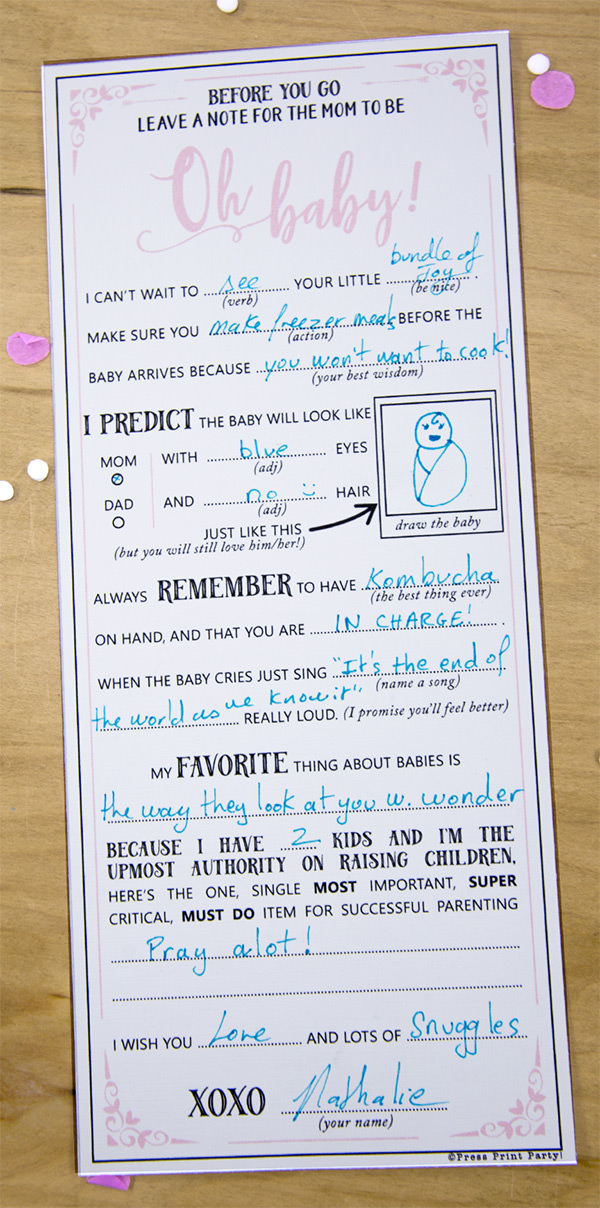 BEFORE YOU GO
LEAVE A NOTE FOR THE MOM TO BE
Oh baby!
bundle of
I CAN'T WAIT TO see YOUR LITTLE Joy.
(verb) (be nice)
MAKE SURE YOU make freezer meals BEFORE THE
(action)
BABY ARRIVES BECAUSE you won't want to cook!
(your best wisdom)
I PREDICT THE BABY WILL LOOK LIKE
MOM WITH blue EYES
(adj)
DAD AND no HAIR
(adj)
JUST LIKE THIS
(but you will still love him/her!)
draw the baby
ALWAYS REMEMBER TO HAVE Kombucha
(the best thing ever)
ON HAND, AND THAT YOU ARE IN CHARGE!.
WHEN THE BABY CRIES JUST SING "It's the end of
(name a song)
the world as we know it" REALLY LOUD. (I promise you'll feel better)
MY FAVORITE THING ABOUT BABIES IS
the way they look at you w. wonder
BECAUSE I HAVE 2 KIDS AND I'M THE
UPMOST AUTHORITY ON RAISING CHILDREN,
HERE'S THE ONE, SINGLE MOST IMPORTANT, SUPER
CRITICAL, MUST DO ITEM FOR SUCCESSFUL PARENTING
Pray alot!
I WISH YOU Love AND LOTS OF Snuggles
XOXO Nathalie
(your name)
©Press Print Party!